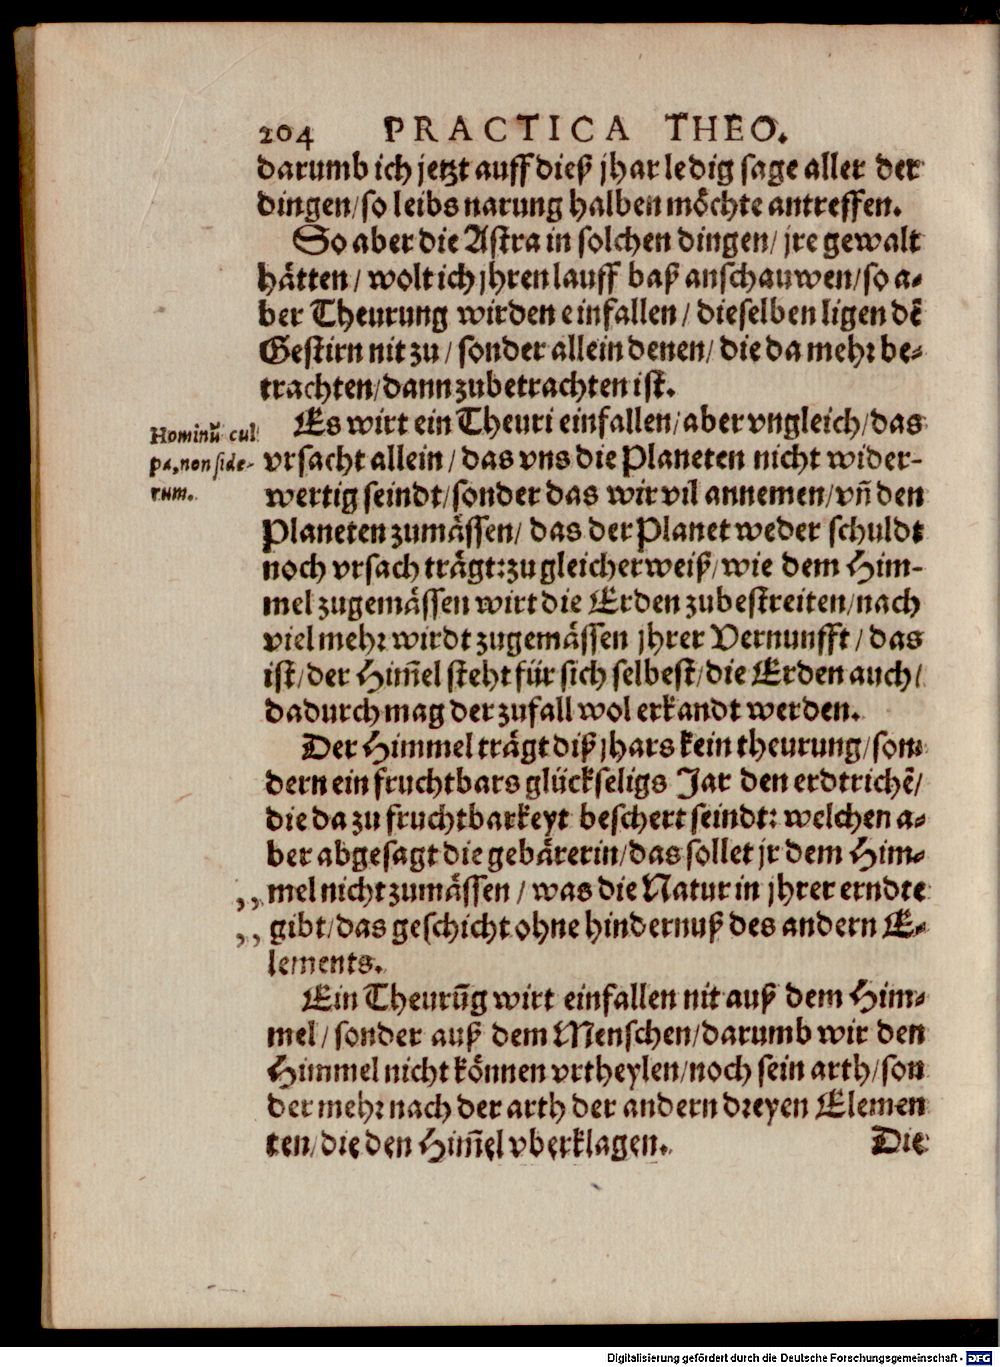 204 PRACTICA THEO.
darumb ich jetzt auff dieß jhar ledig sage aller der
dingen/so leibs narung halben möchte antreffen.
So aber die Astra in solchen dingen/ jre gewalt
hätten/ wolt ich jhren lauff baß anschauwen/so a-
ber Theurung wirden einfallen/ dieselben ligen dē
Gestirn nit zu/ sonder allein denen/ die da mehr be-
trachten/dann zubetrachten ist.
Es wirt ein Theuri einfallen/aber vngleich/das
Hominū cul
pa, non side-
rum.
vrsacht allein/ das vns die Planeten nicht wider-
wertig seindt/sonder das wir vil annemen/vñ den
Planeten zumässen/ das der Planet weder schuldt
noch vrsach trägt:zu gleicher weiß/wie dem Him-
mel zugemässen wirt die Erden zubestreiten/nach
viel mehr wirdt zugemässen jhrer Vernunfft/ das
ist/der Him̃el steht für sich selbest/die Erden auch/
dadurch mag der zufall wol erkandt werden.
Der Himmel trägt diß jhars kein theurung/son-
dern ein fruchtbars glückseligs Jar den erdtrichē/
die da zu fruchtbarkeyt beschert seindt: welchen a-
ber abgesagt die gebärerin/das sollet jr dem Him-
,, mel nicht zumässen/ was die Natur in jhrer erndte
,, gibt/das geschicht ohne hindernuß des andern E-
lements.
Ein Theurūg wirt einfallen nit auß dem Him-
mel/ sonder auß dem Menschen/darumb wir den
Himmel nicht können vrtheylen/noch sein arth/son
der mehr nach der arth der andern dreyen Elemen
ten/die den Him̃el vberklagen.
Die
Digitalisierung gefördert durch die Deutsche Forschungsgemeinschaft - DFG